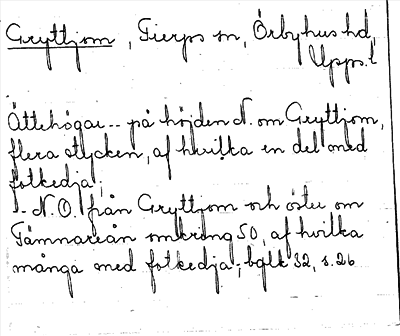 Gryttjom, Tierps sn, Örbyhus hd,
Upps. l
Ättehögar -- på höjden N. om Gryttjom,
flera stycken, af hvilka en del med
fotkedja;
-- N.O. från Gryttjom och öster om
Tämnareån omkring 50, af hvilka
många med fotkedja; bglk 32, s. 26